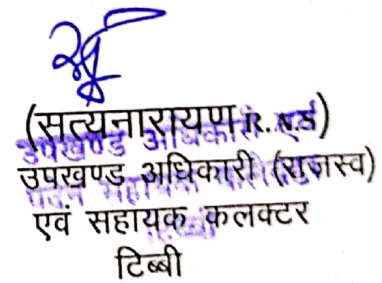 (सत्यनारायण R.N.S)
उपखण्ड अधिकारी (राजस्व)
एवं सहायक कलक्टर
टिब्बी